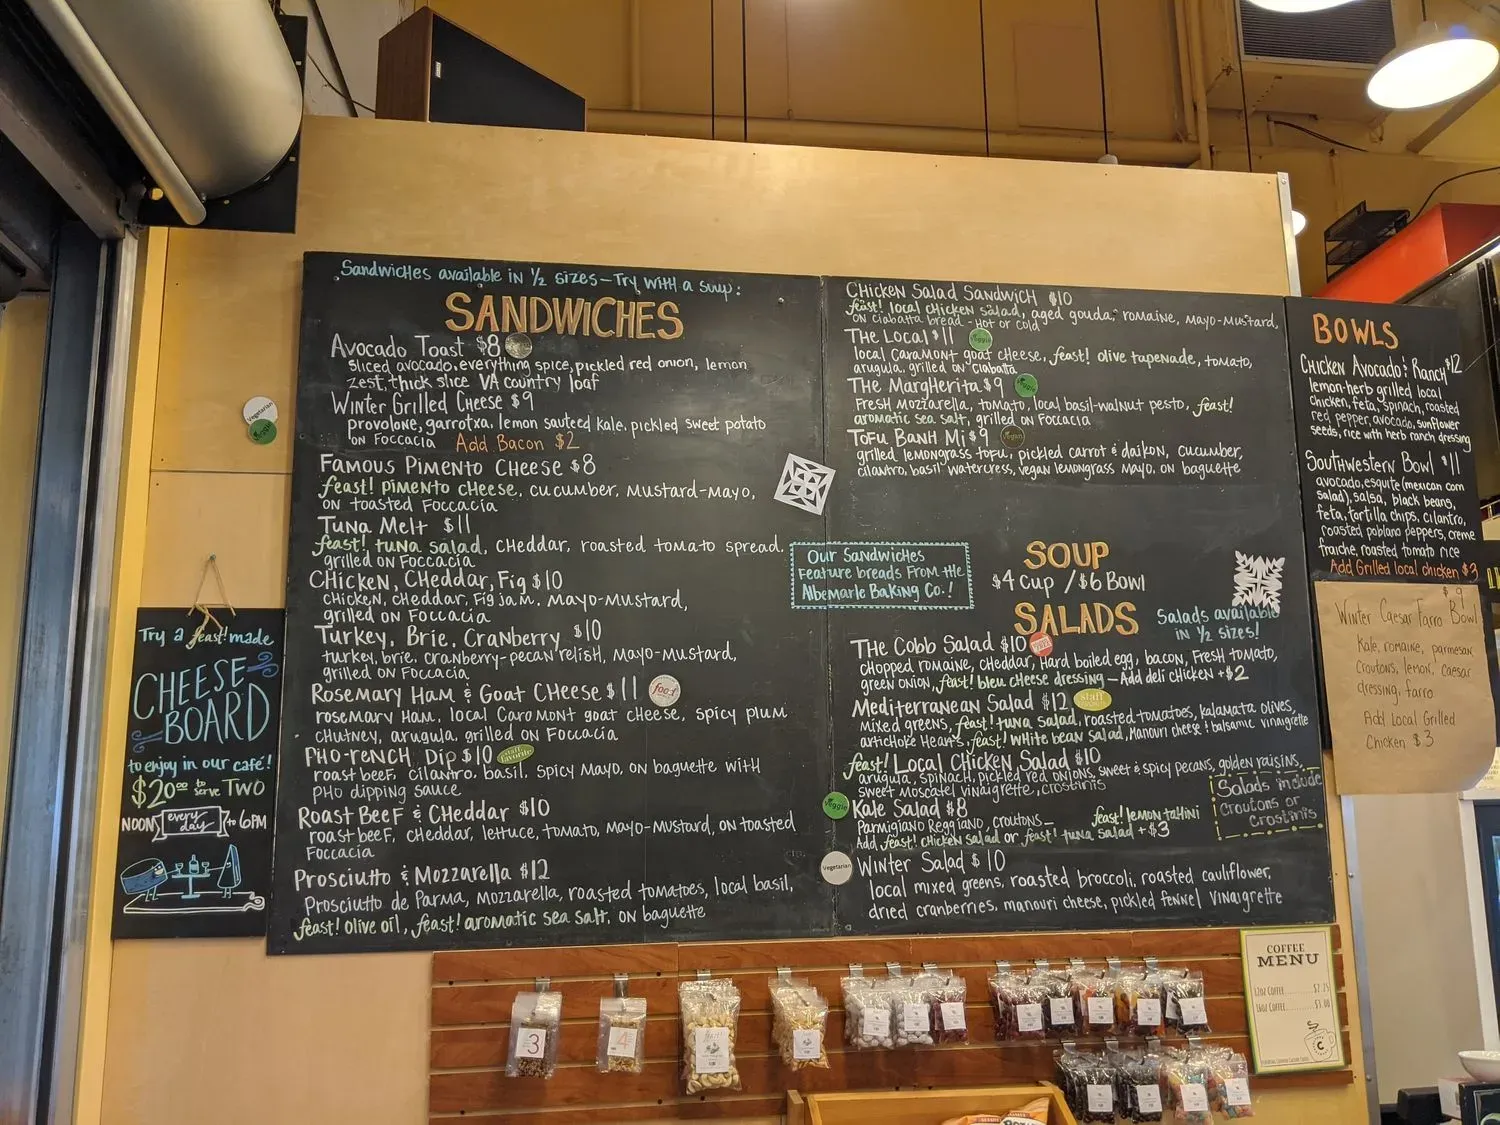 Sandwiches available in 1/2 sizes - Try with a soup:
SANDWICHES
Avocado Toast $8
sliced avocado, everything spice, pickled red onion, lemon
zest, thick slice VA country loaf
Winter Grilled Cheese $9
provolone, garrotxa, lemon sauteed kale, pickled sweet potato
on Foccacia Add Bacon $2
Famous Pimento Cheese $8
feast! pimento cheese, cucumber, mustard-mayo,
on toasted Foccacia
Tuna Melt $11
feast! tuna salad, cheddar, roasted tomato spread,
grilled on Foccacia
Chicken, Cheddar, Fig $10
chicken, cheddar, Fig jam, mayo-mustard,
grilled on Foccacia
Turkey, Brie, Cranberry $10
turkey, brie, cranberry-pecan relish, mayo-mustard,
grilled on Foccacia
Rosemary Ham & Goat Cheese $11
rosemary ham, local Caromont goat cheese, spicy plum
chutney, arugula, grilled on Foccacia
Pho-rench Dip $10 staff favorite
roast beef, cilantro, basil, spicy mayo, on baguette with
pho dipping sauce
Roast Beef & Cheddar $10
roast beef, cheddar, lettuce, tomato, mayo-mustard, on toasted
Foccacia
Prosciutto & Mozzarella $12
Prosciutto de Parma, mozzarella, roasted tomatoes, local basil,
feast! olive oil, feast! aromatic sea salt, on baguette
Chicken Salad Sandwich $10
feast! local chicken salad, aged gouda, romaine, mayo-mustard,
on ciabatta bread - hot or cold
The Local $11 veggie
local Caramont goat cheese, feast! olive tapenade, tomato,
arugula, grilled on Ciabatta
The Margherita $9 veggie
Fresh mozzarella, tomato, local basil-walnut pesto, feast!
aromatic sea salt, grilled on Foccacia
Tofu Banh Mi $9 vegan
grilled lemongrass tofu, pickled carrot & daikon, cucumber,
cilantro, basil, watercress, vegan lemongrass mayo, on baguette
Our Sandwiches
Feature breads from the
Albemarle Baking Co.!
SOUP
$4 Cup / $6 Bowl
SALADS
Salads available
in 1/2 sizes!
The Cobb Salad $10
chopped romaine, cheddar, hard boiled egg, bacon, fresh tomato,
green onion, feast! bleu cheese dressing - Add deli chicken +$2
Mediterranean Salad $12 staff
mixed greens, feast! tuna salad, roasted tomatoes, kalamata olives,
artichoke hearts, feast! white bean salad, Manouri cheese & balsamic vinaigrette
feast! Local Chicken Salad $10
arugula, spinach, pickled red onions, sweet & spicy pecans, golden raisins,
sweet moscatel vinaigrette, crostinis
veggie
Kale Salad $8
Parmigiano Reggiano, croutons - feast! lemon tahini
Add feast! chicken salad or feast! tuna salad +$3
Salads include
croutons or
crostinis
Vegetarian
Winter Salad $10
local mixed greens, roasted broccoli, roasted cauliflower,
dried cranberries, manouri cheese, pickled fennel vinaigrette
BOWLS
Chicken Avocado & Ranch $12
lemon-herb grilled local
chicken, feta, spinach, roasted
red pepper, avocado, sunflower
seeds, rice with herb ranch dressing
Southwestern Bowl $11
avocado, esquite (mexican corn
salad), salsa, black beans,
feta, tortilla chips, cilantro,
roasted poblano peppers, creme
fraiche, roasted tomato rice
Add Grilled local chicken $3
$9
Winter Caesar Farro Bowl
Kale, romaine, parmesan
croutons, lemon, Caesar
dressing, farro
Add Local Grilled
Chicken $3
Vegetarian
veggie
Try a feast! made
CHEESE
BOARD
to enjoy in our café!
$20.00 to serve TWO
NOON every day to 6PM
COFFEE
MENU
12oz Coffee.........$2.75
16oz Coffee.........$3.00
3
4